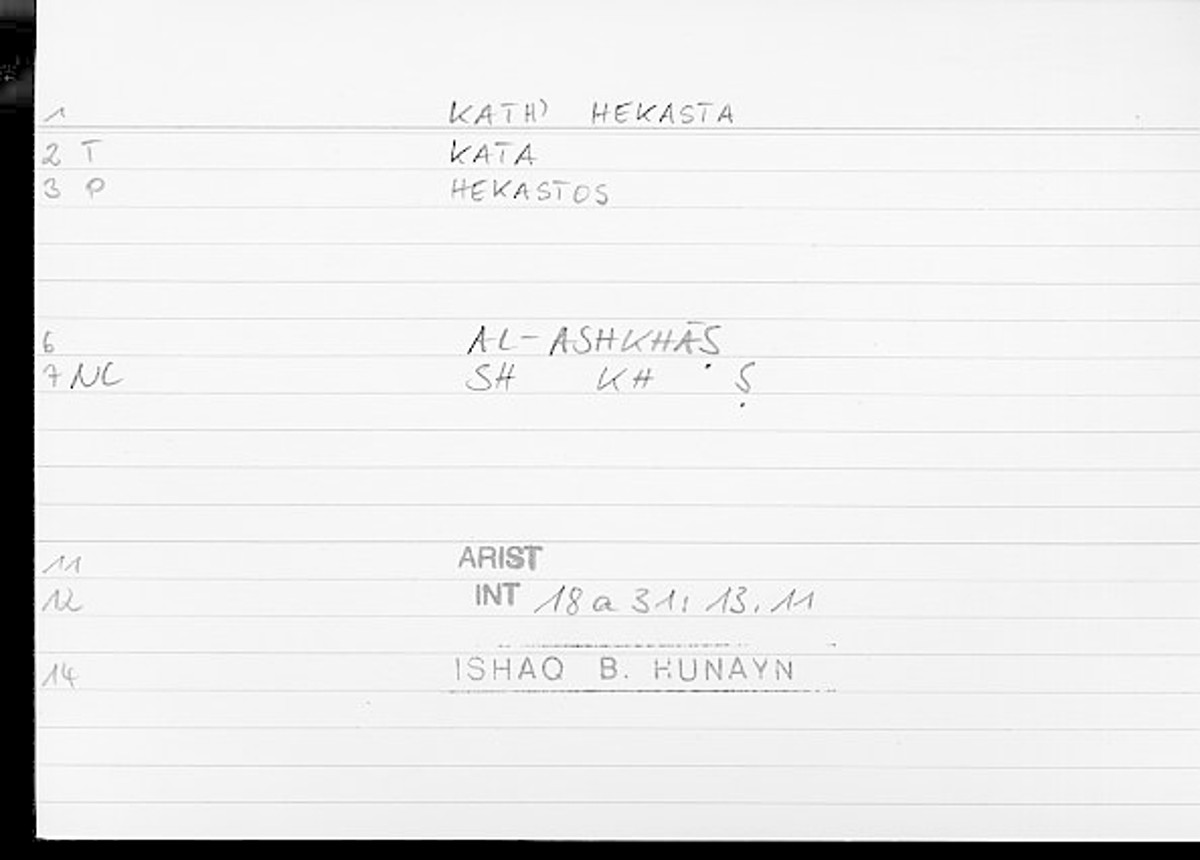 1 KATH) HEKASTA
2 T KATA
3 P HEKASTOS
6 AL-ASHKHĀṢ
7 NC SH KH Ṣ
11 ARIST
12 INT 18 a 31: 13.11
14 ISHAQ B. HUNAYN